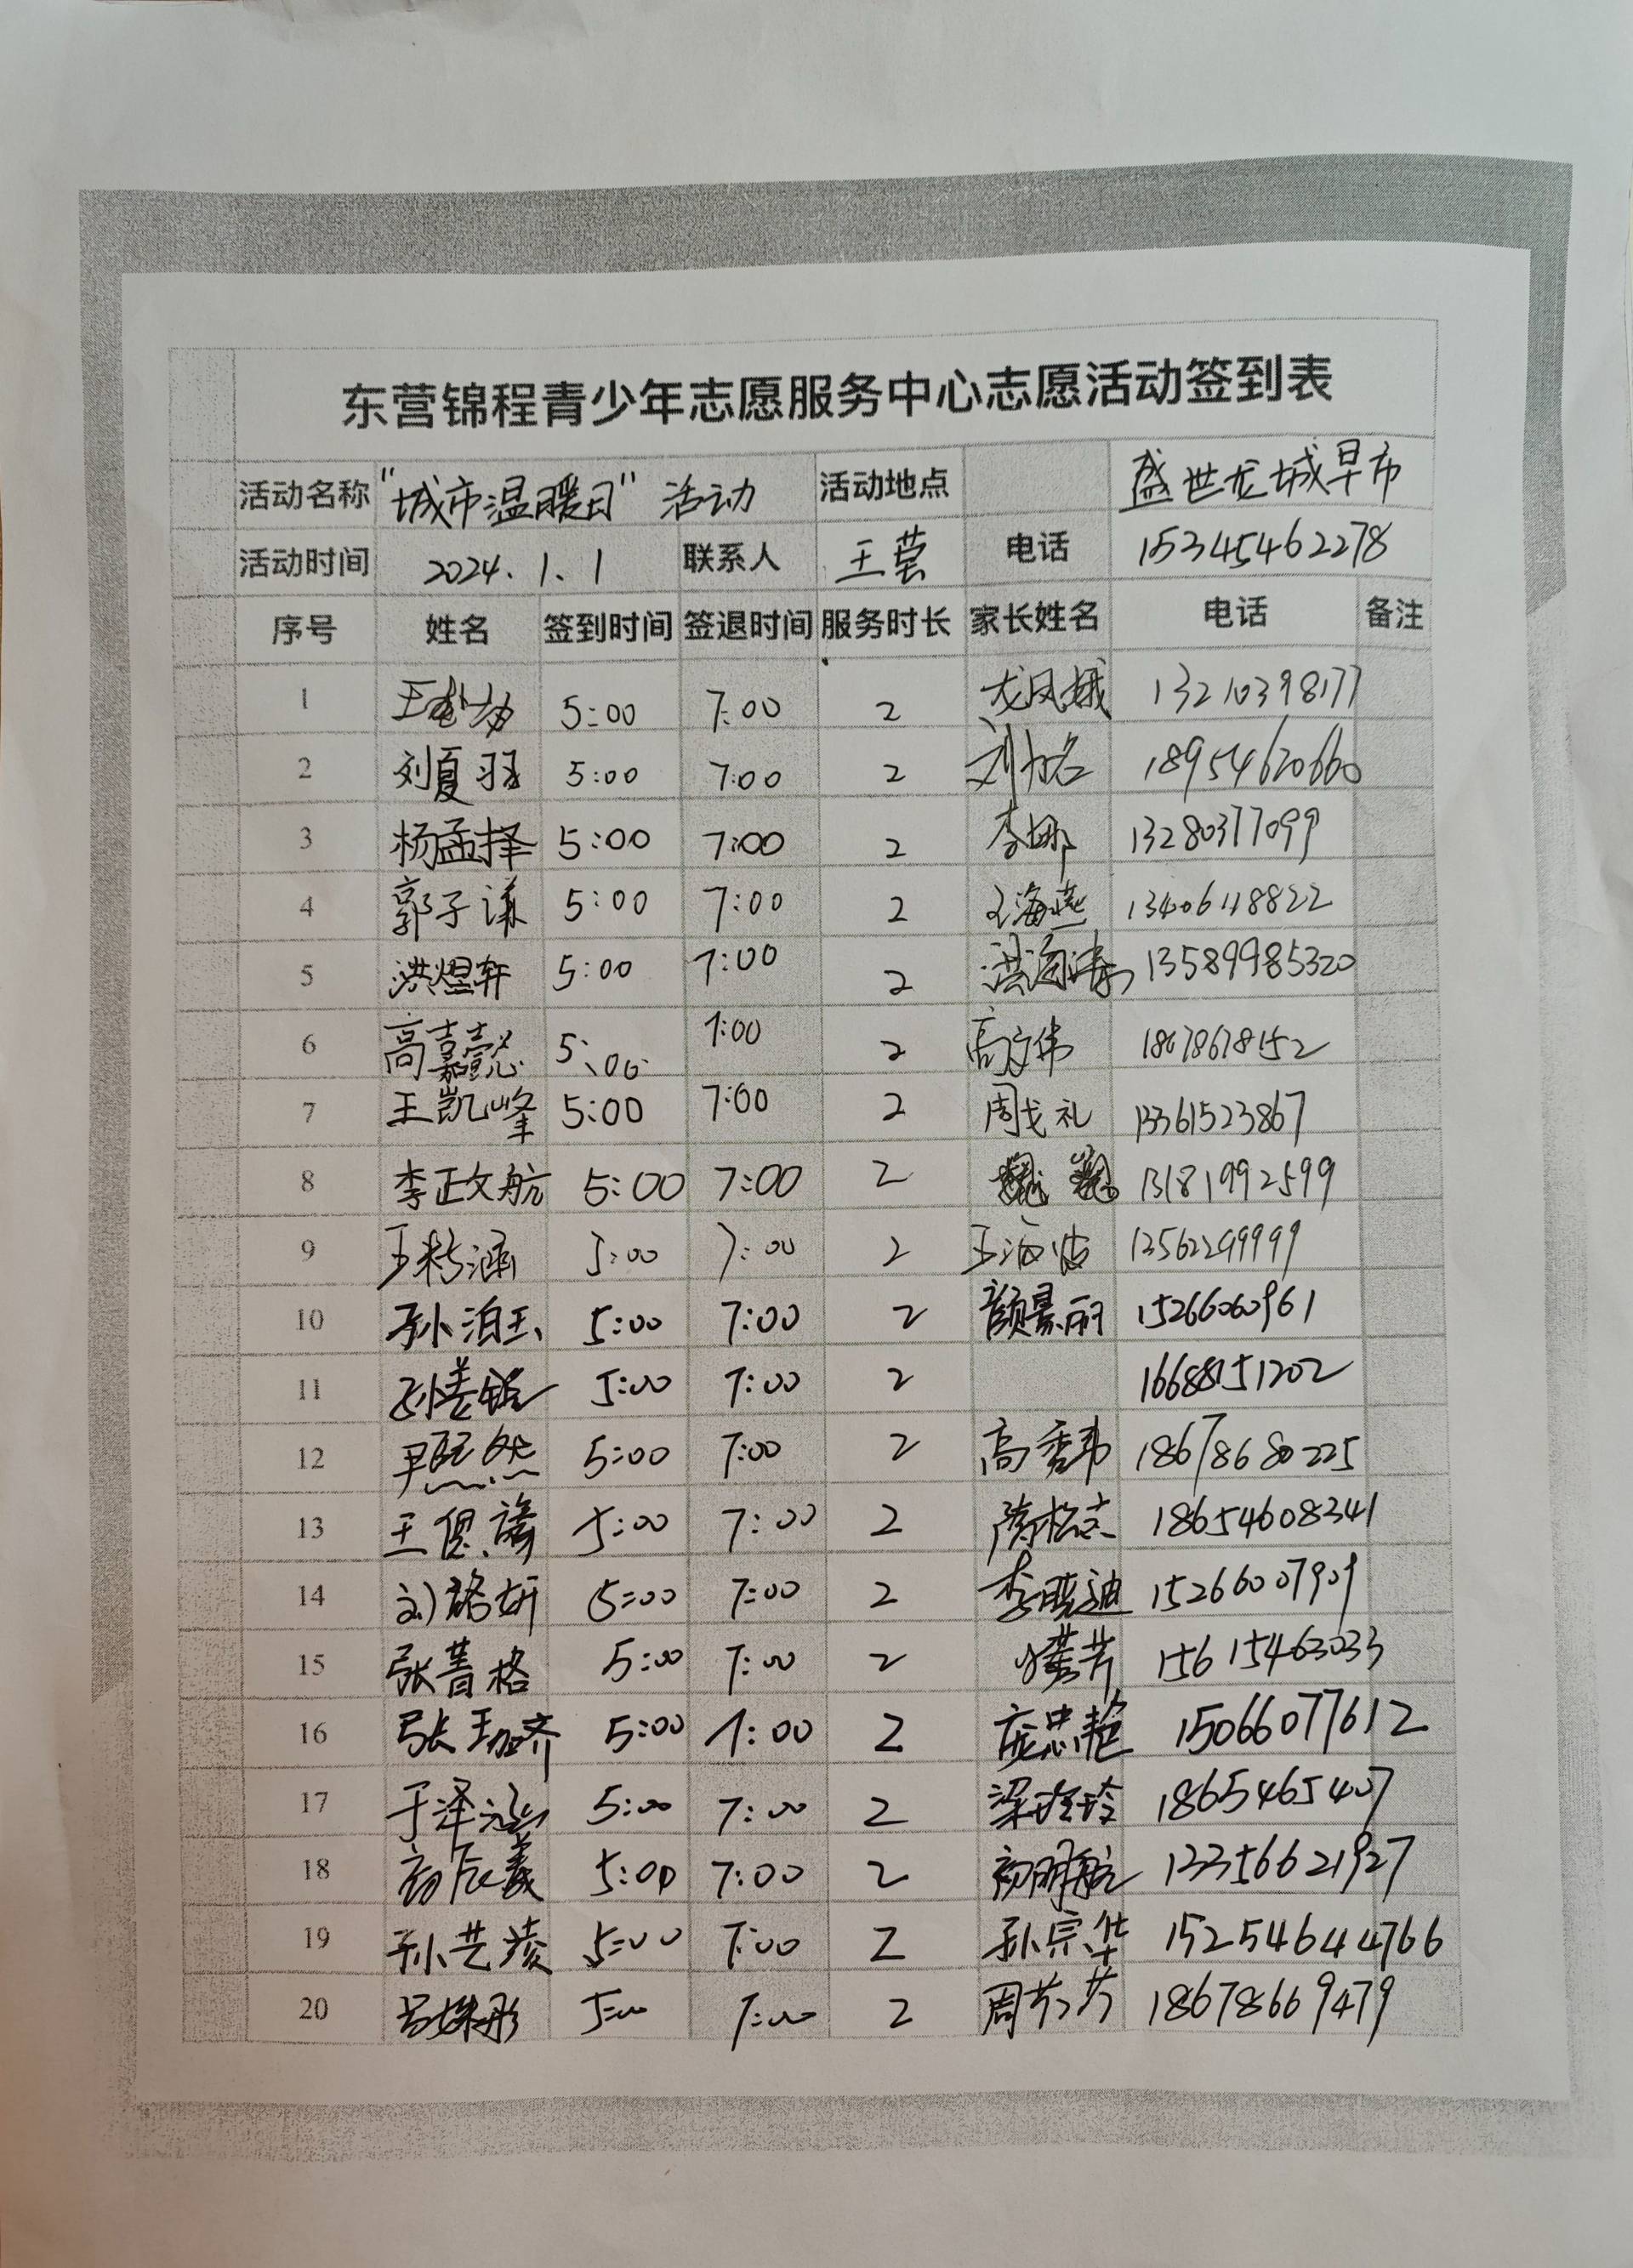 东营锦程青少年志愿服务中心志愿活动签到表
活动名称 "城市温暖日" 活动 活动地点 盛世龙城早市
活动时间 2024.1.1 联系人 王芸 电话 15345462278
序号 姓名 签到时间 签退时间 服务时长 家长姓名 电话 备注
1 5:00 7:00 2 龙凤娥 13210398177
2 刘夏羽 5:00 7:00 2 18954620660
3 杨孟择 5:00 7:00 2 李娜 13280377099
4 郭子谦 5:00 7:00 2 王海燕 13406118822
5 洪煜轩 5:00 7:00 2 13589985320
6 高嘉懿 5:00 7:00 2 18678678152
7 王凯峰 5:00 7:00 2 周戈礼 13361523867
8 李正文航 5:00 7:00 2 13181992599
9 5:00 7:00 2 13562299999
10 孙泊玉 5:00 7:00 2 颜景丽 15266060961
11 5:00 7:00 2 16688151202
12 尹熙然 5:00 7:00 2 高秀韦 18678680225
13 5:00 7:00 2 18654608341
14 5:00 7:00 2 李晓迪 15266007909
15 张菁格 5:00 7:00 2 15615463033
16 5:00 7:00 2 庞忠艳 15066077612
17 于泽涵 5:00 7:00 2 梁玲玲 1865465407
18 初辰羲 5:00 7:00 2 初明航 13356621927
19 孙艺凌 5:00 7:00 2 孙宗华 152546444766
20 吕姝彤 5:00 7:00 2 周芳芳 18678669479